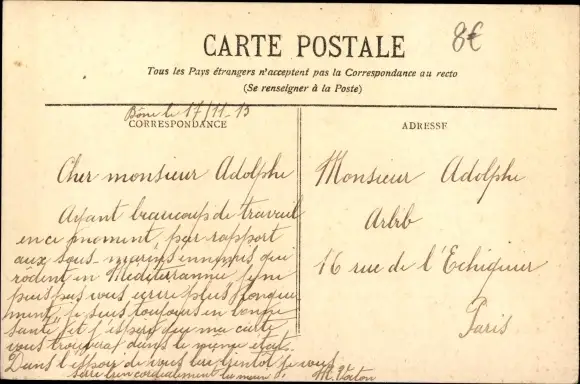 8€
CARTE POSTALE
Tous les Pays étrangers n'acceptent pas la Correspondance au recto
(Se renseigner à la Poste)
Bône le 17/11-15
CORRESPONDANCE
ADRESSE
Cher monsieur Adolphe
Ayant beaucoup de travail
en ce moment, par rapport
aux sous-marins ennemis qui
rôdent en Méditerrannée je ne
puis pas vous ecrire plus longue
ment, je suis toujours en bonne
santé et j'espère que ma carte
vous trouvera dans le même état.
Dans l'espoir de vous lire bientôt je vous
serre bien cordialement la main
Monsieur Adolphe
16 rue de l'Echiquier
Paris